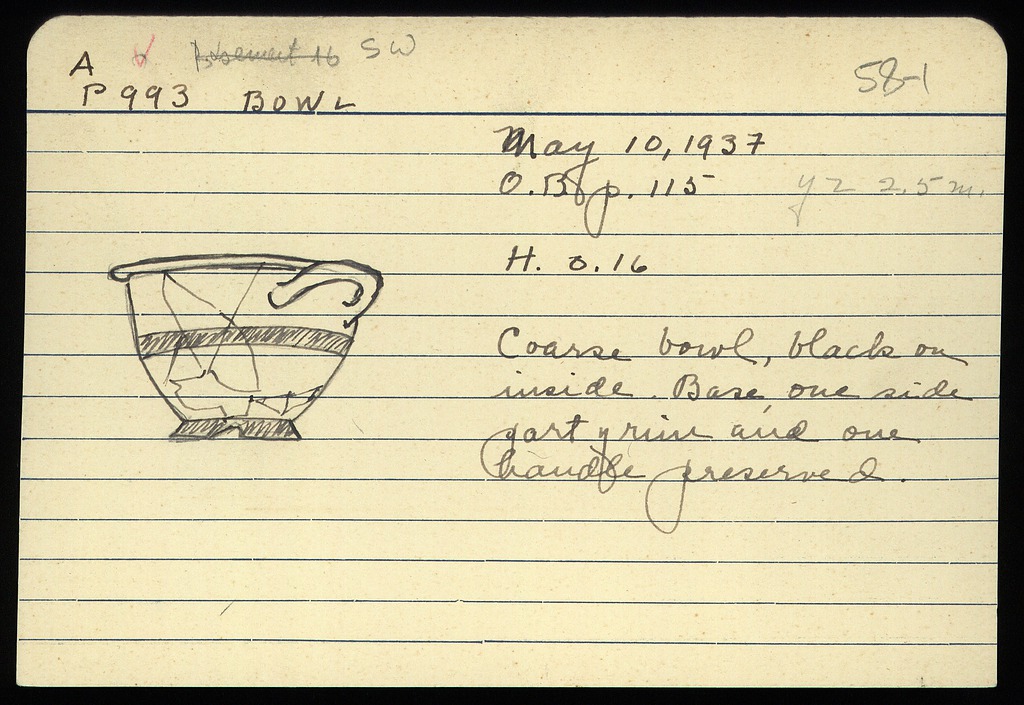 A Basement 16 SW
58-1
P 993 BOWL
May 10, 1937
O.B. p. 115 y2 2.5 m.
H. 0.16
Coarse bowl, black on
inside. Base, one side
part of rim and one
handle preserved.